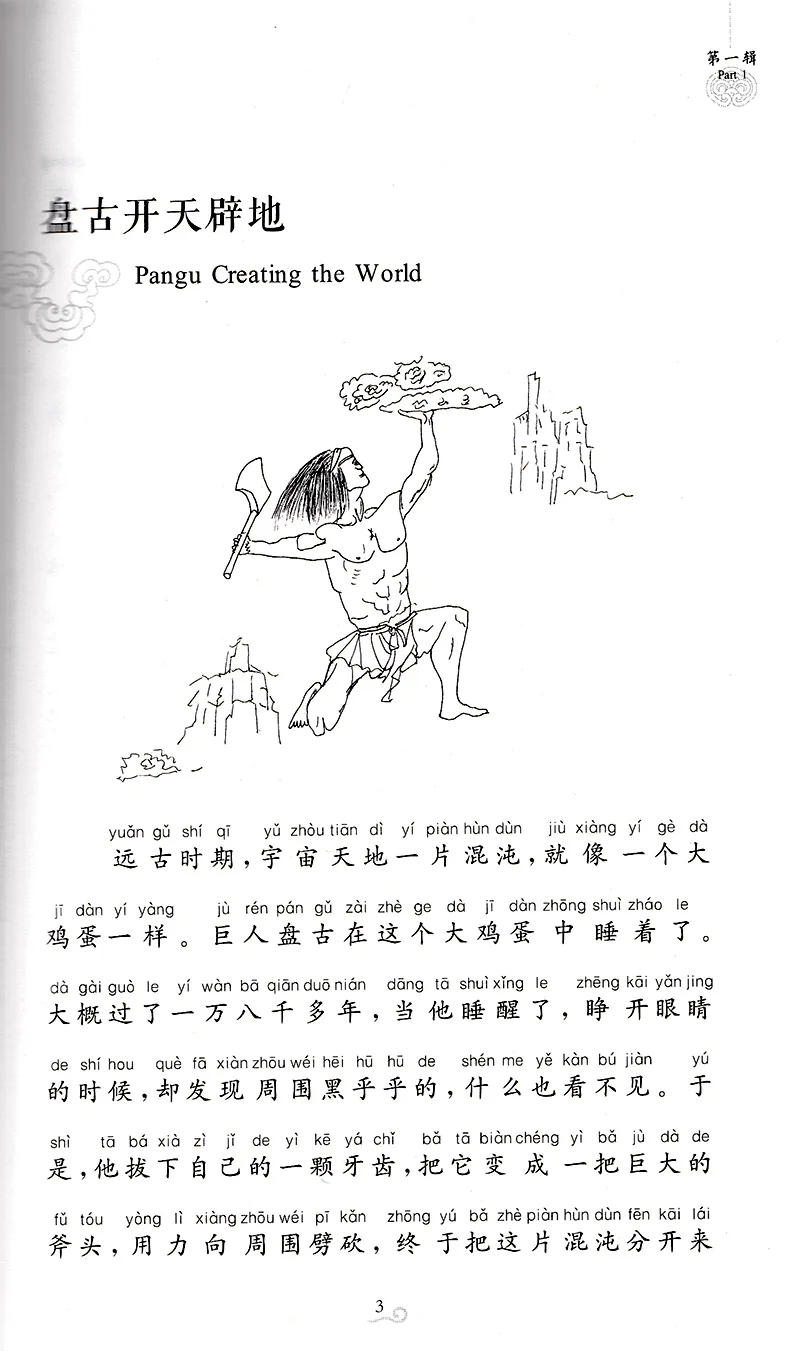 第一辑
Part 1
盘古开天辟地
Pangu Creating the World
yuǎn gǔ shí qī yǔ zhòu tiān dì yí piàn hùn dùn jiù xiàng yí gè dà
远古时期，宇宙天地一片混沌，就像一个大
jī dàn yí yàng jù rén pán gǔ zài zhè ge dà jī dàn zhōng shuì zháo le
鸡蛋一样。巨人盘古在这个大鸡蛋中睡着了。
dà gài guò le yí wàn bā qiān duō nián dāng tā shuì xǐng le zhēng kāi yǎn jing
大概过了一万八千多年，当他睡醒了，睁开眼睛
de shí hou què fā xiàn zhōu wéi hēi hū hū de shén me yě kàn bú jiàn yú
的时候，却发现周围黑乎乎的，什么也看不见。于
shì tā bá xià zì jǐ de yì kē yá chǐ bǎ tā biàn chéng yì bǎ jù dà de
是，他拔下自己的一颗牙齿，把它变成一把巨大的
fǔ tóu yòng lì xiàng zhōu wéi pī kǎn zhōng yú bǎ zhè piàn hùn dùn fēn kāi lái
斧头，用力向周围劈砍，终于把这片混沌分开来
3